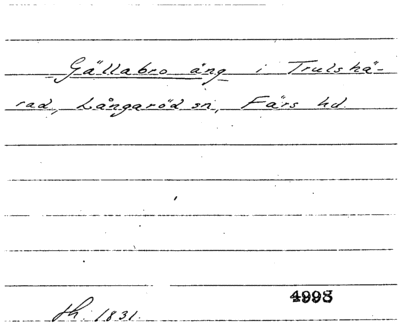 Gällabro äng i Trulshä-
rad, Långaröd sn, Färs hd
4998
fh. 1831.